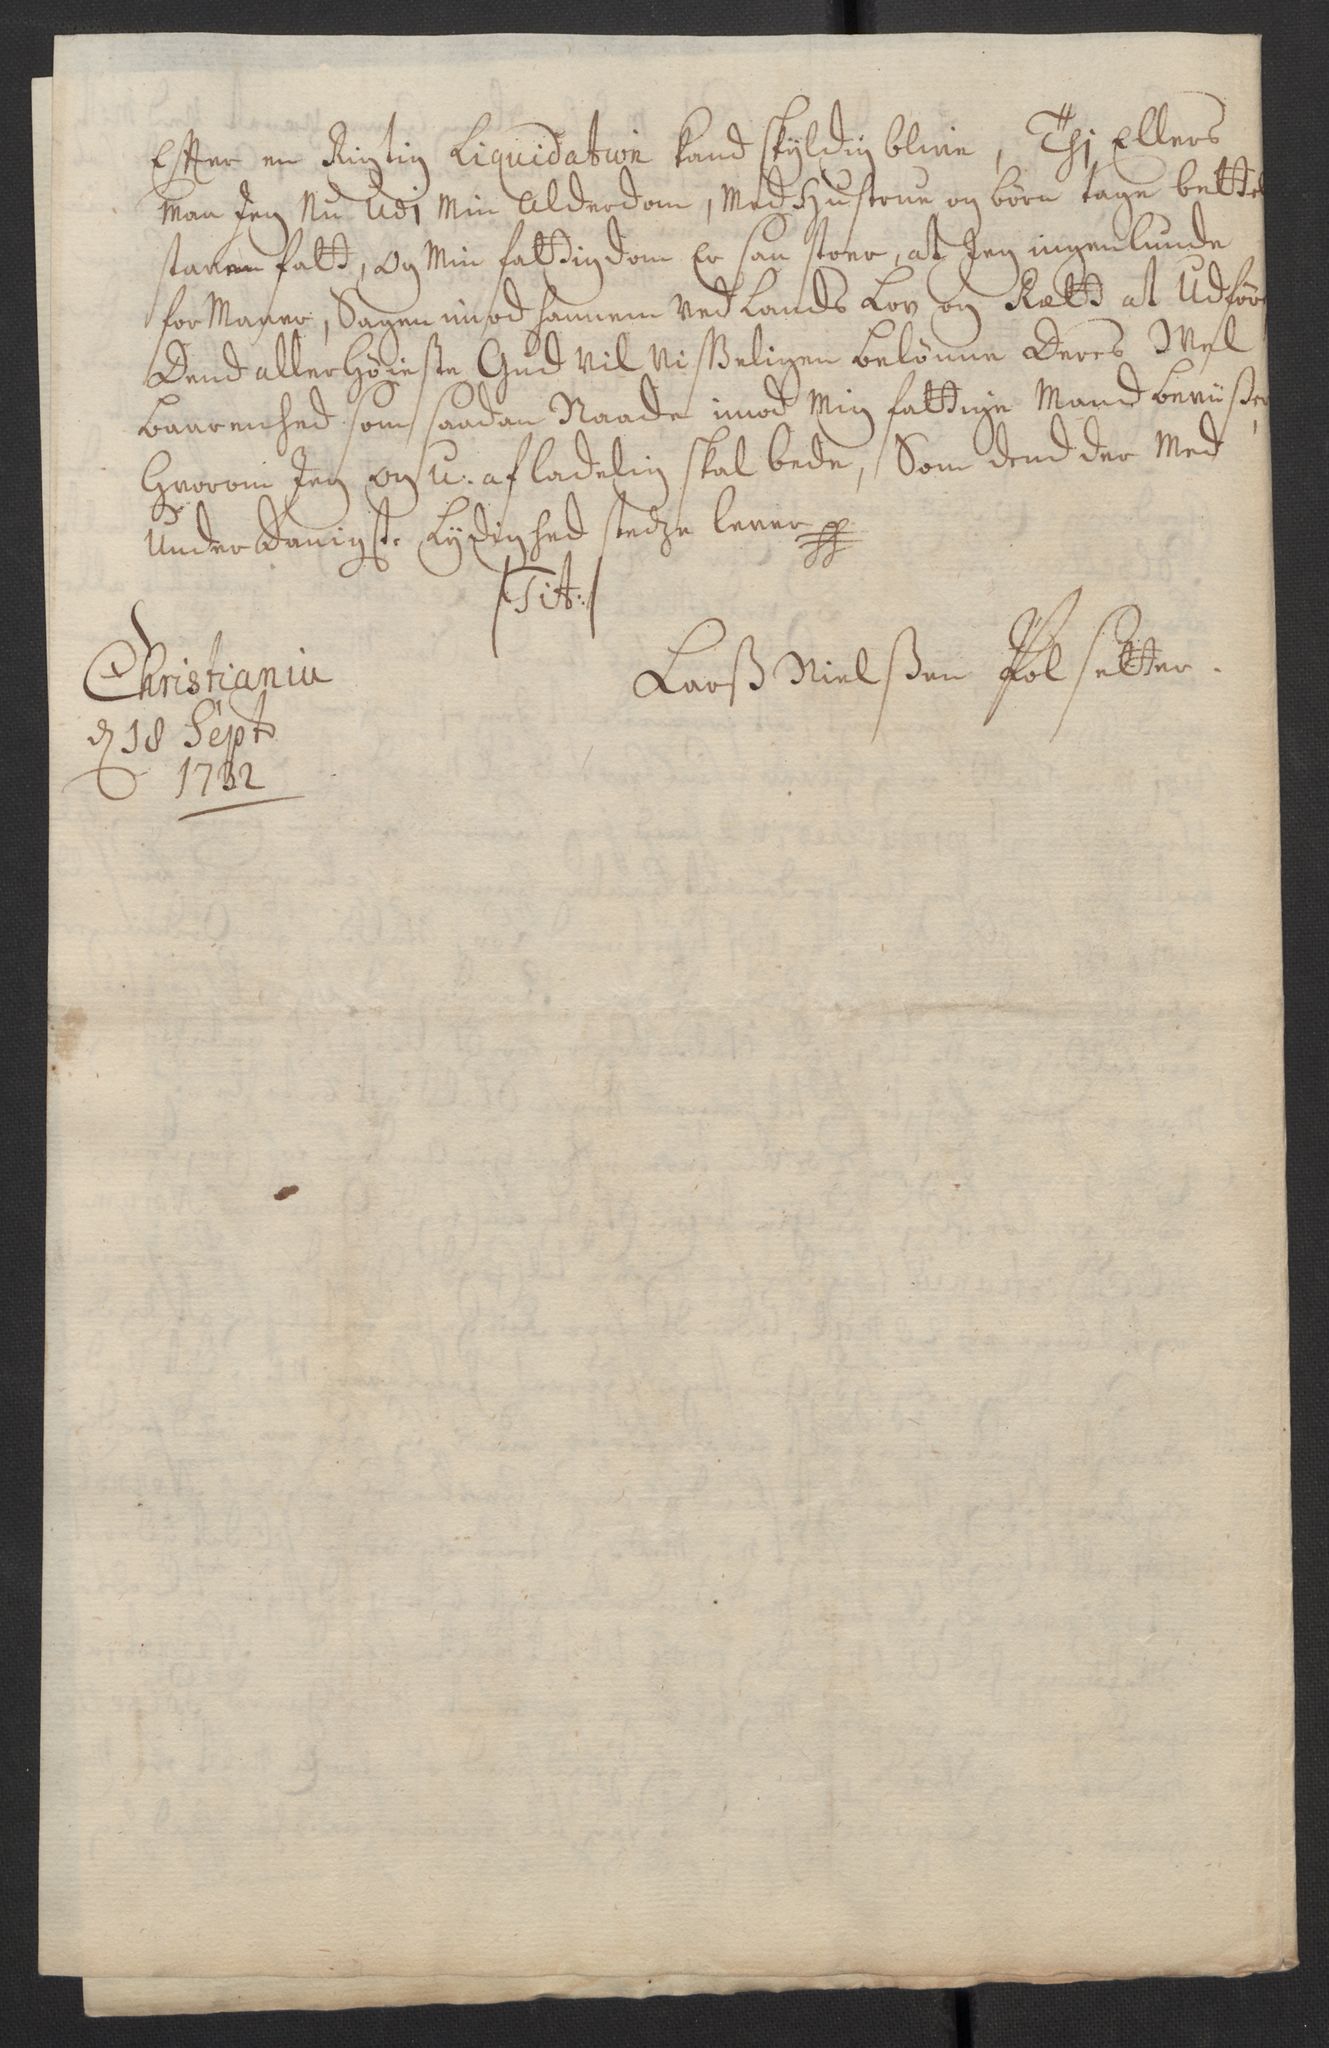 Efter en Rigtig Liquidation kand skÿldig blive, Thj Ellers
maa Jeg Nu Udj Min Alderdom, Med Hustrue og børn tage bettel
staven fatt, og Min fattigdom Er saa stoer, at Jeg ingenlunde
for Maaer, Sagen imod hannem Ved Lands Lov og Rætt at Udføre
Dend aller Høieste Gud vil visseligen belønne Deres Wel
baarenhed som saadan Naade imod Mig fattige Mand beviißer,
Hvorom Jeg og u. afladelig skal bede, Som dend der Med
Underdanigst. Lÿdighed stedze lever
/Tit:/
Christiania
d 18 Sept
1732
Larß Nielßen Holsetter.